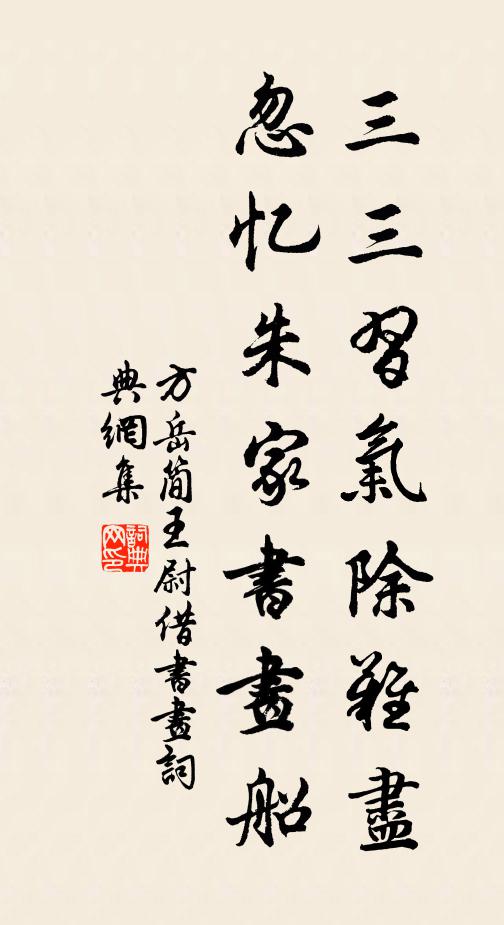 三三習氣除難盡
忽忆朱家書畫船
方岳簡王尉借書畫詞
典網集
詞典
网印